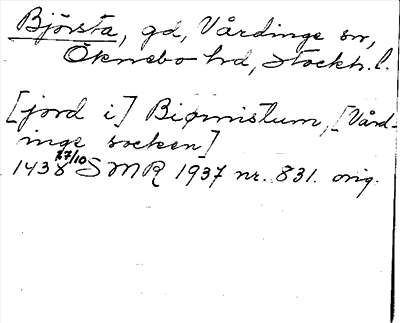 Björsta, gd, Vårdinge sn,
Öknebo hd, Stockh. l.
[jord i] Biørnistum, [Vård-
inge socken]
1438 27/10 SMR 1937 nr. 831. orig.